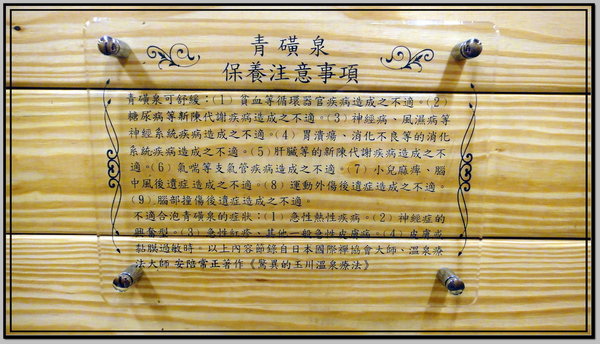 青磺泉
保養注意事項
青磺泉可舒緩：(1) 貧血等循環器官疾病造成之不適。(2)
糖尿病等新陳代謝疾病造成之不適。(3) 神經病、風濕病等
神經系統疾病造成之不適。(4) 胃潰瘍、消化不良等的消化
系統疾病造成之不適。(5) 肝臟等的新陳代謝疾病造成之不
適。(6) 氣喘等支氣管疾病造成之不適。(7) 小兒麻痺、腦
中風後遺症造成之不適。(8) 運動外傷後遺症造成之不適。
(9) 腦部撞傷後遺症造成之不適。
不適合泡青磺泉的症狀：(1) 急性熱性疾病。(2) 神經症的
興奮型。(3) 急性紅疹、其他一般急性皮膚病。(4) 皮膚或
黏膜過敏時。以上內容節錄自日本國際禪協會大師、溫泉療
法大師 安陪常正著作《驚異的玉川溫泉療法》